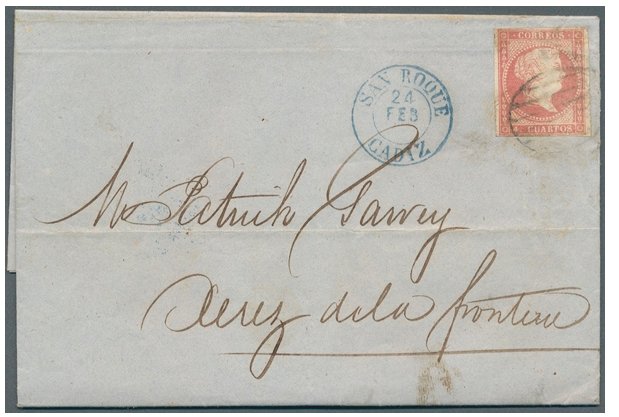 CORREOS
4 CUARTOS
SAN ROQUE
24
FEB
CADIZ
Mr Patrick Garvey
Xerez de la frontera